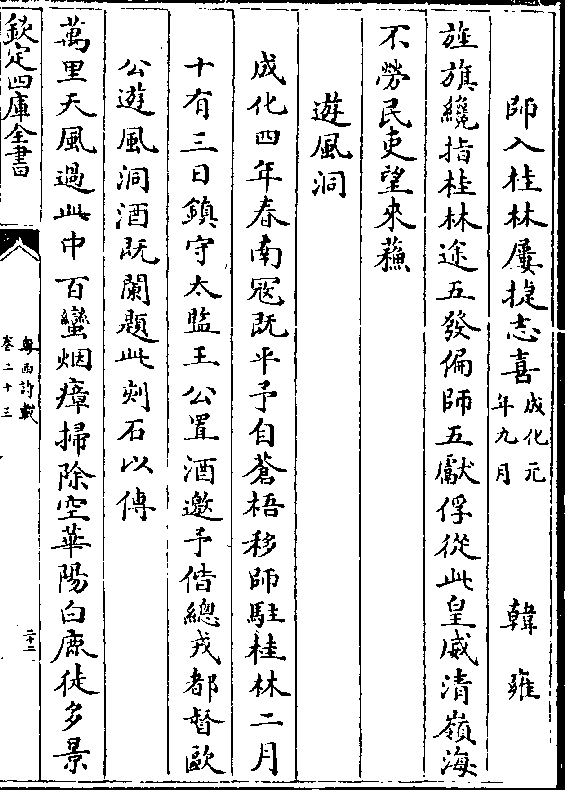 師入桂林屢捷志喜成化元年九月 韓雍
旌旗纔指桂林途五發偏師五獻俘從此皇威清嶺海
不勞民吏望來蘓
遊風洞
成化四年春南宼既平予自蒼梧移師駐桂林二月
十有三日鎮守太監王公置酒邀予偕總戎都督歐
公遊風洞酒既闌題此刻石以傳
萬里天風過此中百蠻烟瘴掃除空華陽白鹿徒多景
欽定四庫全書
粤西詩載
卷二十三
二十二